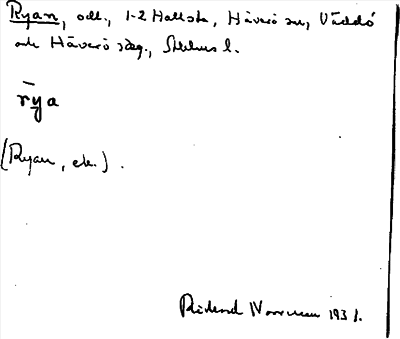 Ryan, odl., 1-2 Hallsta, Häverö sn, Väddö
och Häverö skg., Sthlms l.
rȳa
(Ryan, ek.).
Rickard Norrman 1931.